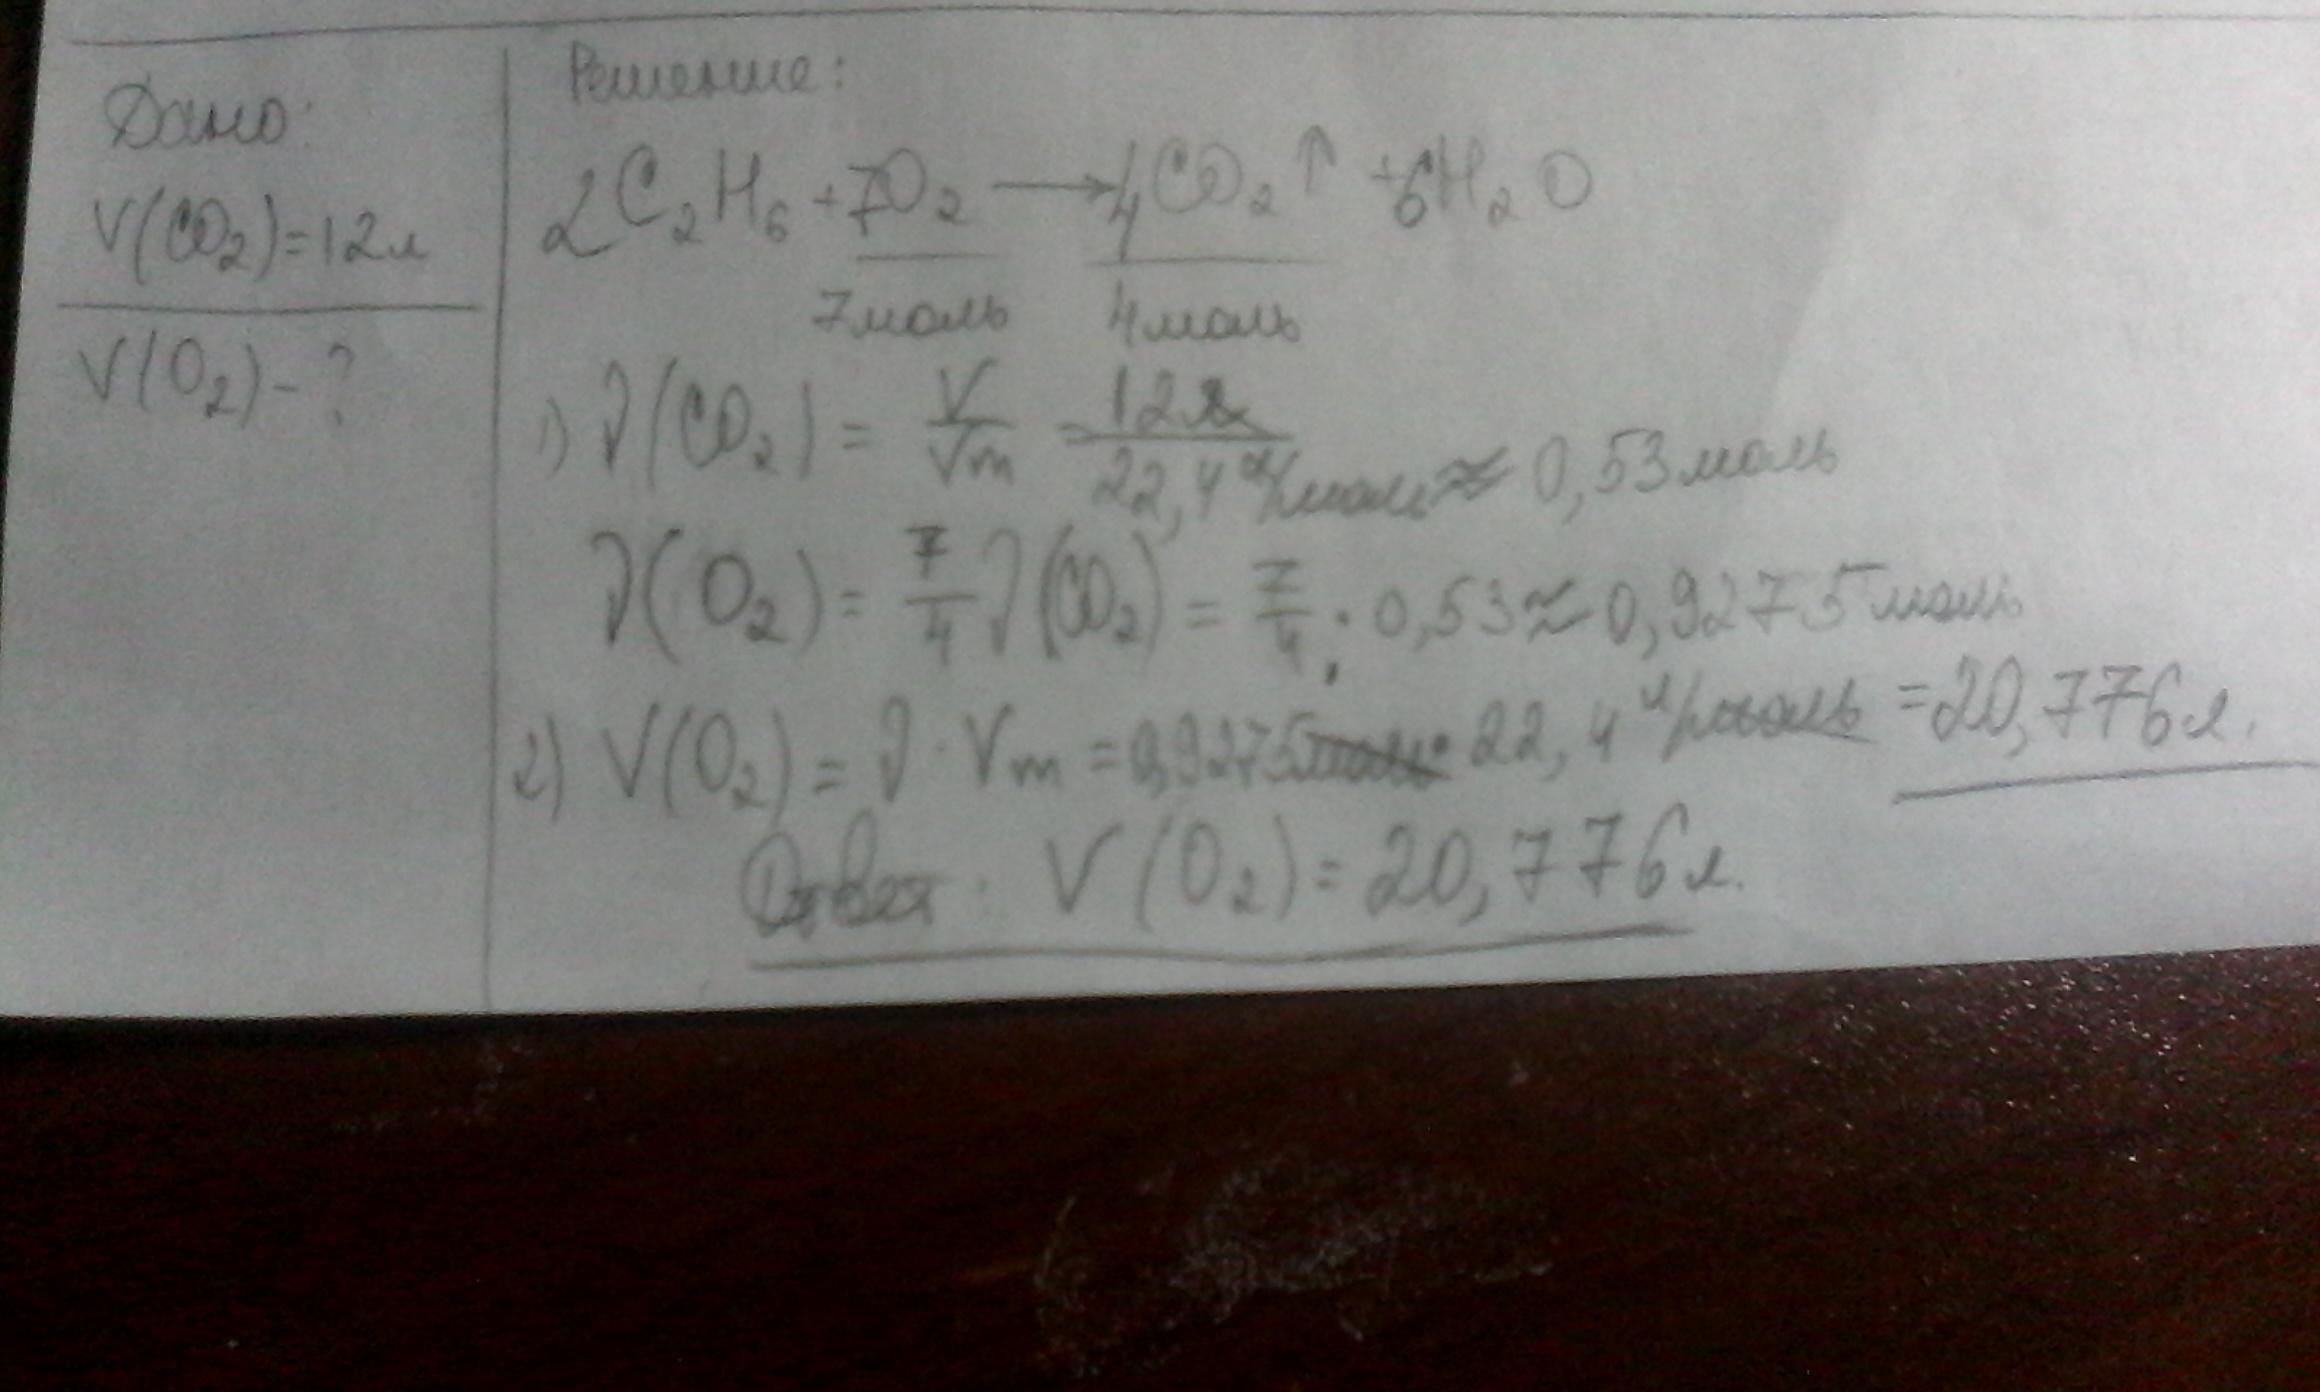 Дано:
V(CO₂)=12л
V(O₂)-?
Решение:
2C₂H₆+7O₂→4CO₂↑+6H₂O
7моль 4моль
1) ν(CO₂)=V/Vm=12л/22,4л/моль≈0,53моль
ν(O₂)=7/4ν(CO₂)=7/4·0,53≈0,9275моль
2) V(O₂)=ν·Vm=0,9275моль·22,4л/моль=20,776л.
Ответ: V(O₂)=20,776л.